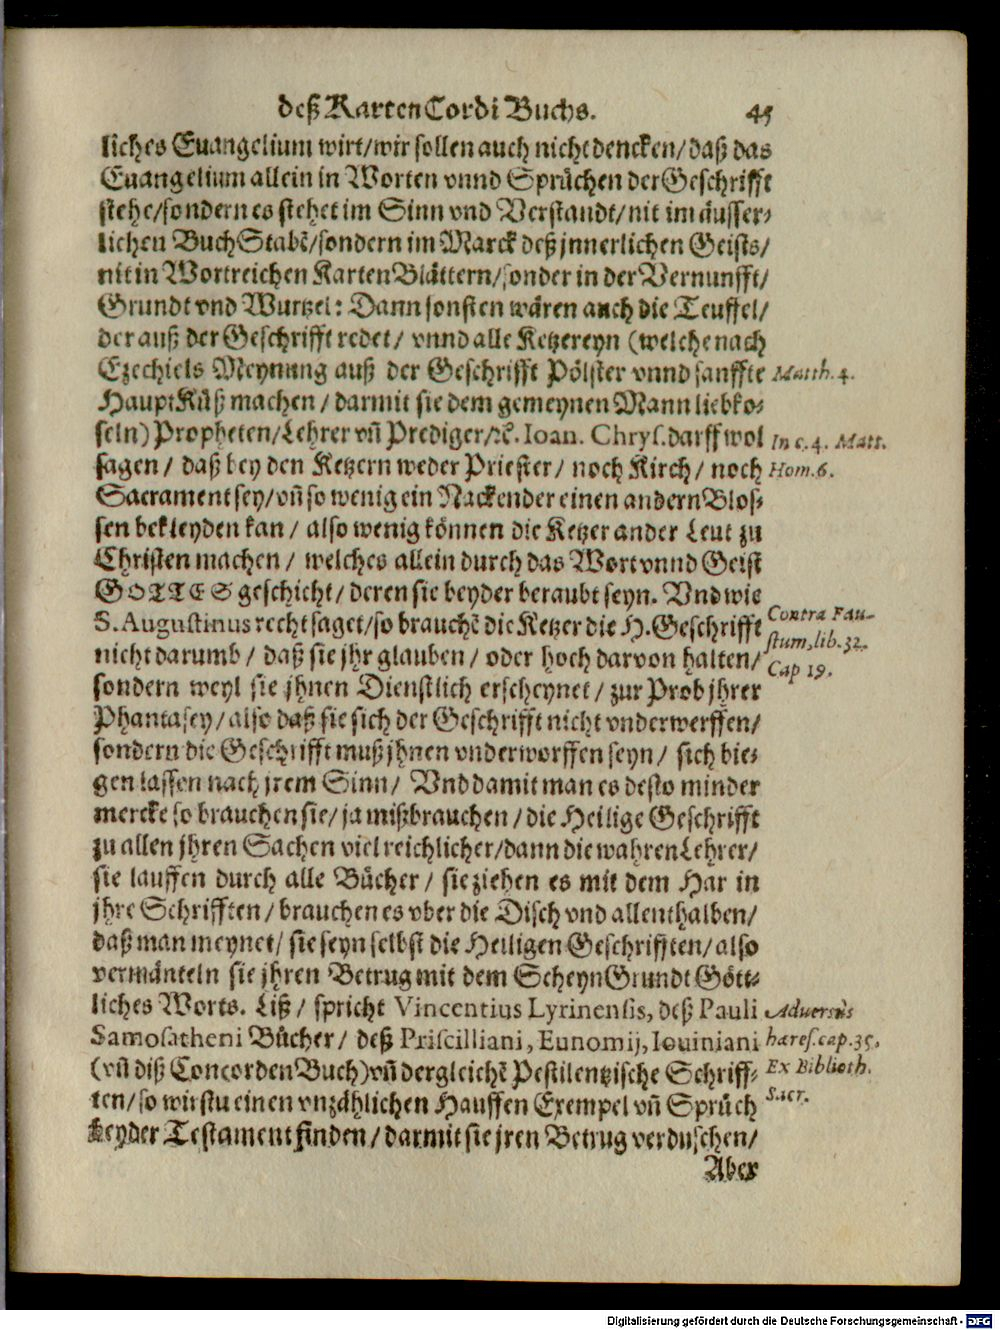 deß Karten Cordi Buchs. 45
liches Euangelium wirt/wir sollen auch nicht dencken/daß das
Euangelium allein in Worten vnnd Sprüchen der Geschrifft
stehe/sondern es stehet im Sinn vnd Verstandt/nit im äusser-
lichen BuchStabẽ/sondern im Marck deß jnnerlichen Geists/
nit in Wortreichen Karten Blättern/sonder in der Vernunfft/
Grundt vnd Wurtzel: Dann sonsten wären auch die Teuffel/
der auß der Geschrifft redet/ vnnd alle Ketzereyn (welche nach
Ezechiels Meynung auß der Geschrifft Pölster vnnd sanffte
Matth. 4.
HauptKüß machen/ darmit sie dem gemeynen Mann liebko-
seln) Propheten/Lehrer vñ Prediger/ꝛc. Ioan. Chrys. darff wol
In c. 4. Matt.
sagen/ daß bey den Ketzern weder Priester/ noch Kirch/ noch
Hom. 6.
Sacrament sey/vñ so wenig ein Nackender einen andern Blos-
sen bekleyden kan/ also wenig können die Ketzer ander Leut zu
Christen machen/ welches allein durch das Wort vnnd Geist
GOTTES geschicht/ deren sie beyder beraubt seyn. Vnd wie
S. Augustinus recht saget/so brauchẽ die Ketzer die H. Geschrifft
Contra Fau-
stum, lib. 32.
Cap 19.
nicht darumb/ daß sie jhr glauben/ oder hoch darvon halten/
sondern weyl sie jhnen Dienstlich erscheynet/ zur Prob jhrer
Phantasey/also daß sie sich der Geschrifft nicht vnderwerffen/
sondern die Geschrifft muß jhnen vnderworffen seyn/ sich bie-
gen lassen nach jrem Sinn/ Vnd damit man es desto minder
mercke so brauchen sie/ja mißbrauchen/die Heilige Geschrifft
zu allen jhren Sachen viel reichlicher/dann die wahren Lehrer/
sie lauffen durch alle Bücher/ sie ziehen es mit dem Har in
jhre Schrifften/ brauchen es vber die Disch vnd allenthalben/
daß man meynet/ sie seyn selbst die Heiligen Geschrifften/also
vermänteln sie jhren Betrug mit dem Scheyn Grundt Gött-
liches Worts. Liß/ spricht Vincentius Lyrinensis, deß Pauli
Aduersùs
Samosatheni Bücher/ deß Priscilliani, Eunomij, Iouiniani
hæres. cap. 35.
(vñ diß Concorden Buch) vñ dergleichẽ Pestilentzische Schriff-
Ex Biblioth.
ten/so wirstu einen vnzählichen Hauffen Exempel vñ Sprüch
Sacr.
beyder Testament finden/darmit sie jren Betrug verduschen/
Aber
Digitalisierung gefördert durch die Deutsche Forschungsgemeinschaft - DFG